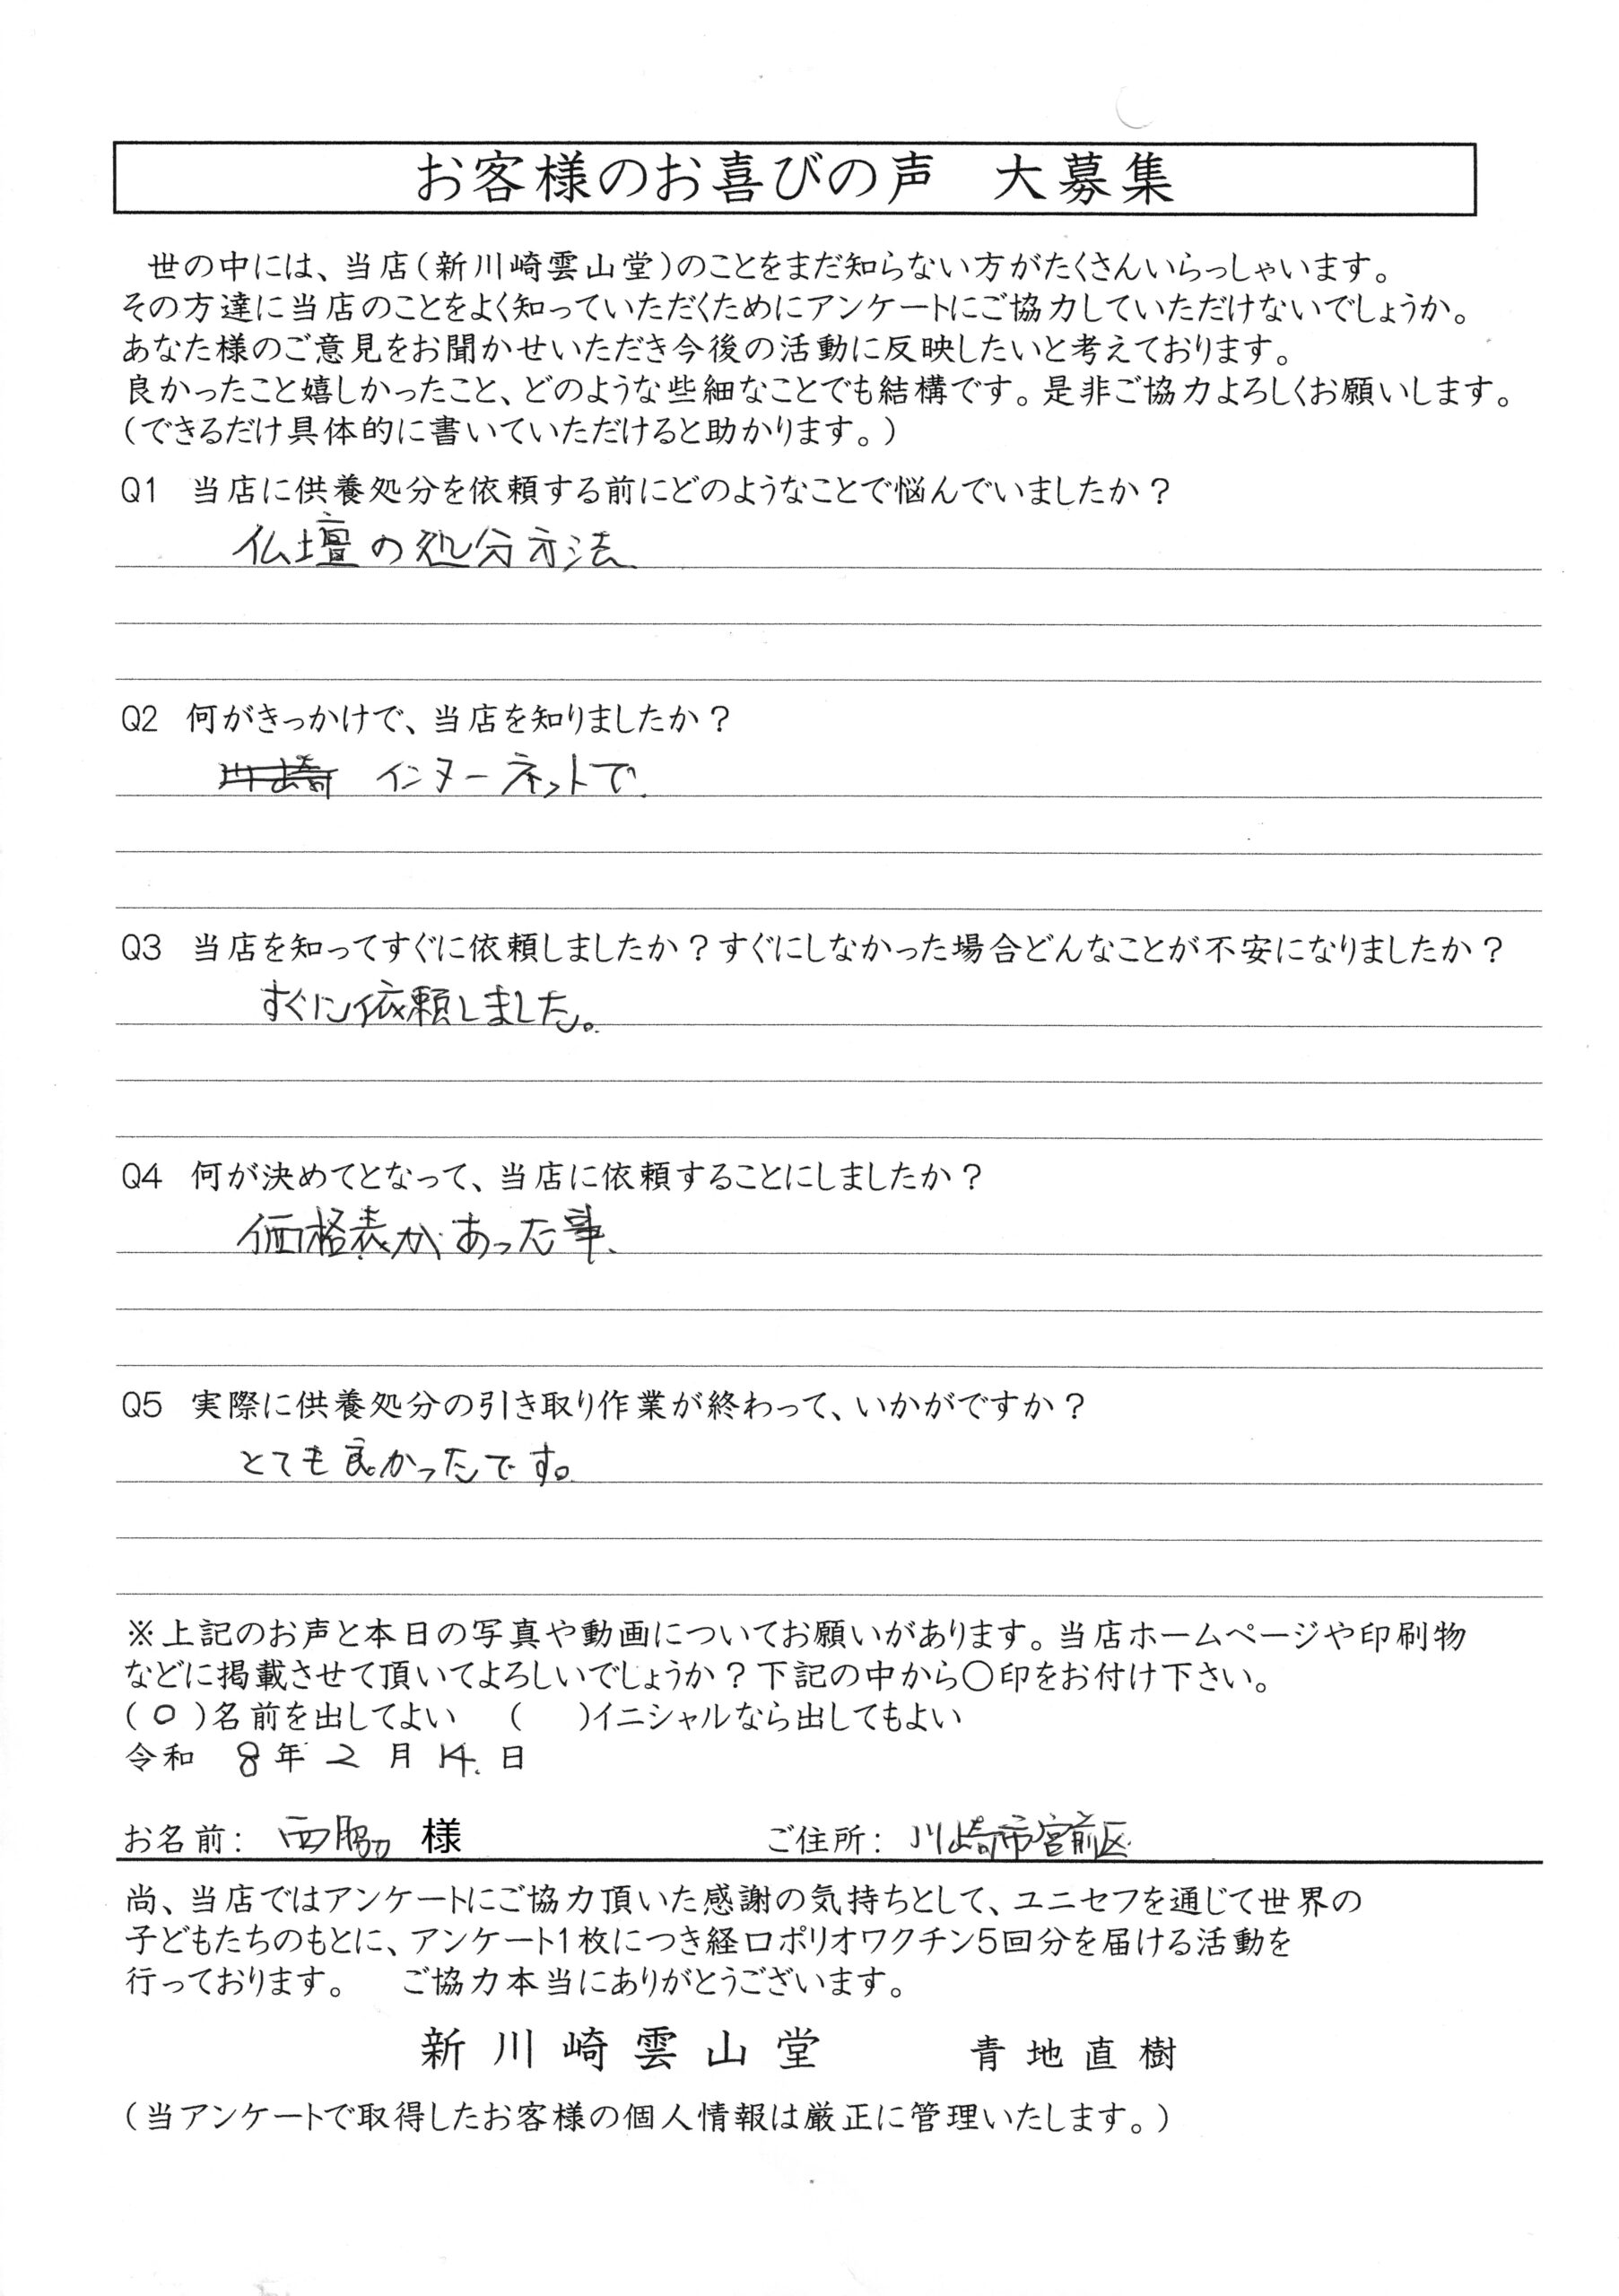 お客様のお喜びの声　大募集
世の中には、当店(新川崎雲山堂)のことをまだ知らない方がたくさんいらっしゃいます。
その方達に当店のことをよく知っていただくためにアンケートにご協力していただけないでしょうか。
あなた様のご意見をお聞かせいただき今後の活動に反映したいと考えております。
良かったこと嬉しかったこと、どのような些細なことでも結構です。是非ご協力よろしくお願いします。
(できるだけ具体的に書いていただけると助かります。)
Q1　当店に供養処分を依頼する前にどのようなことで悩んでいましたか？
仏壇の処分方法
Q2　何がきっかけで、当店を知りましたか？
川崎 インターネットで.
Q3　当店を知ってすぐに依頼しましたか？すぐにしなかった場合どんなことが不安になりましたか？
すぐに依頼しました。
Q4　何が決めてとなって、当店に依頼することにしましたか？
価格表があった事、
Q5　実際に供養処分の引き取り作業が終わって、いかがですか？
とても良かったです。
※上記のお声と本日の写真や動画についてお願いがあります。当店ホームページや印刷物
などに掲載させて頂いてよろしいでしょうか？下記の中から〇印をお付け下さい。
(○)名前を出してよい　(　)イニシャルなら出してもよい
令和 8年 2月 14.日
お名前： 西脇 様　ご住所： 川崎市宮前区
尚、当店ではアンケートにご協力頂いた感謝の気持ちとして、ユニセフを通じて世界の
子どもたちのもとに、アンケート1枚につき経口ポリオワクチン5回分を届ける活動を
行っております。　ご協力本当にありがとうございます。
新川崎雲山堂　青地直樹
(当アンケートで取得したお客様の個人情報は厳正に管理いたします。)